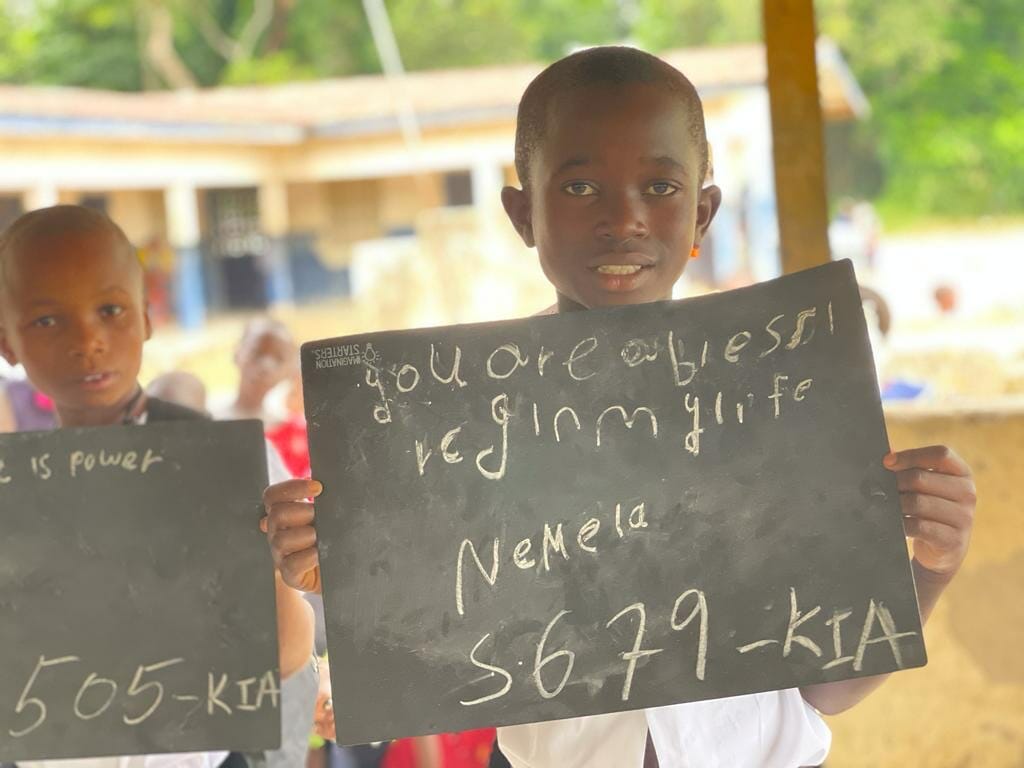 e is power
505-KIA
IMAGINATION
STARTERS
you are a blessi
reg in my life
NeMela
S679-KIA